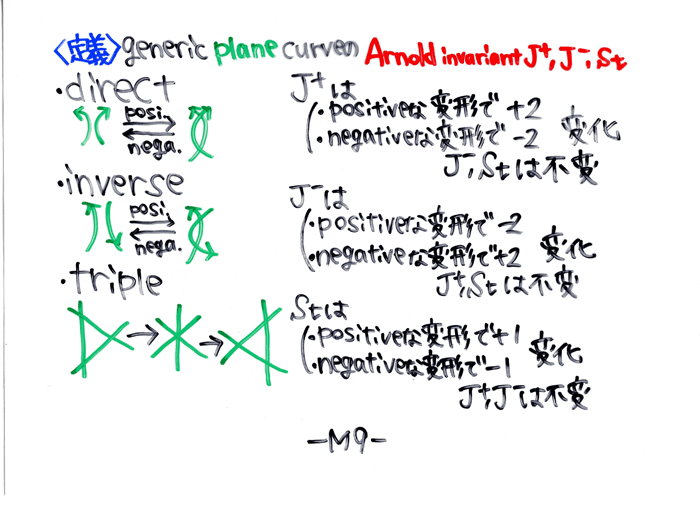 〈定義〉generic plane curveの Arnold invariant J⁺, J⁻, St
・direct
posi.
nega.
J⁺は
・positiveな変形で +2
・negativeな変形で -2 変化
J⁻, Stは不変
・inverse
posi.
nega.
J⁻は
・positiveな変形で -2
・negativeな変形で +2 変化
J⁺, Stは不変
・triple
Stは
・positiveな変形で +1
・negativeな変形で -1 変化
J⁺, J⁻は不変
-M9-